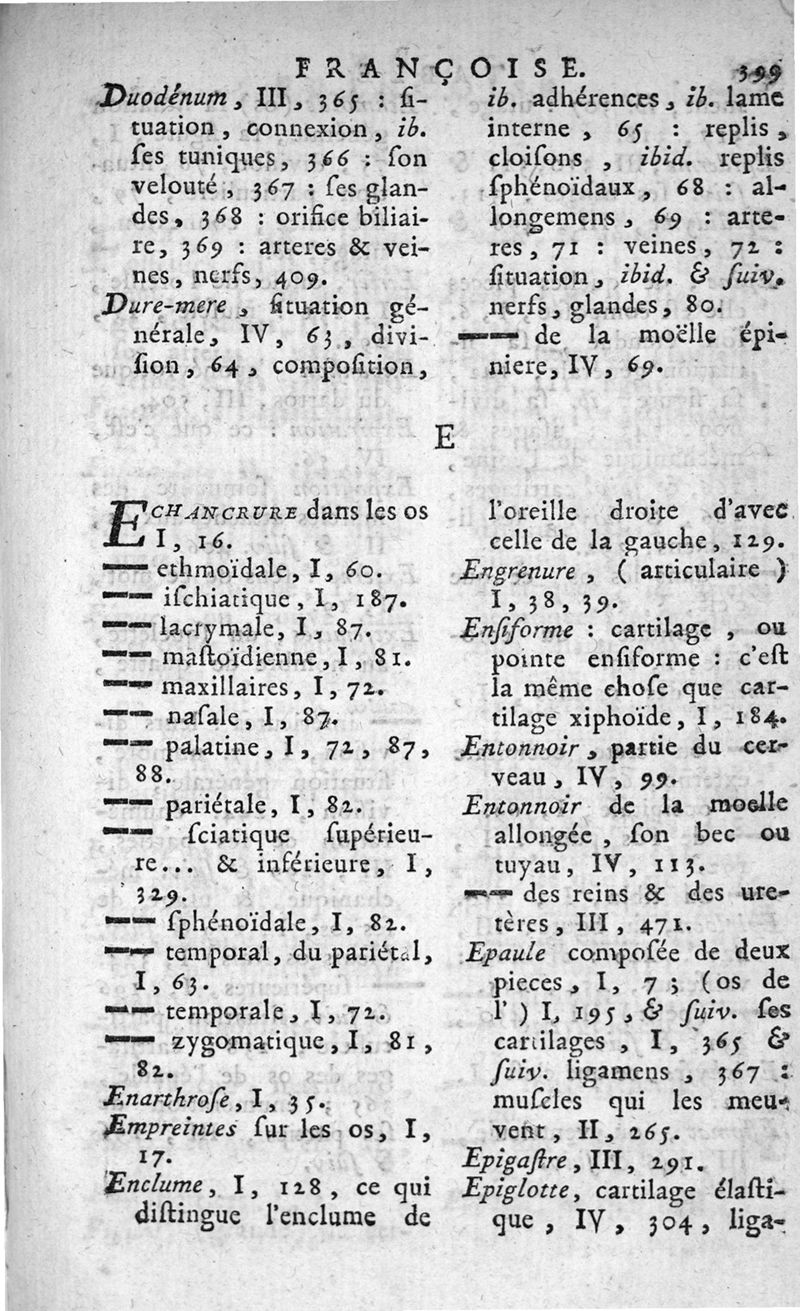 FRANÇOISE. 399
Duodénum, III, 365 : ſi-
tuation, connexion, ib.
ſes tuniques, 366 : ſon
velouté, 367 : ſes glan-
des, 368 : orifice biliai-
re, 369 : arteres & vei-
nes, nerfs, 409.
Dure-mere, ſituation gé-
nérale, IV, 63, divi-
ſion, 64, compoſition,
ib. adhérences, ib. lame
interne, 65 : replis,
cloiſons, ibid. replis
ſphénoïdaux, 68 : al-
longemens, 69 : arte-
res, 71 : veines, 72 :
ſituation, ibid. & ſuiv.
nerfs, glandes, 80.
—— de la moëlle épi-
niere, IV, 69.
E
ECHANCRURE dans les os
I, 16.
—— ethmoïdale, I, 60.
—— iſchiatique, I, 187.
—— lacrymale, I, 87.
—— maſtoïdienne, I, 81.
—— maxillaires, I, 72.
—— naſale, I, 87.
—— palatine, I, 72, 87,
88.
—— pariétale, I, 82.
—— ſciatique ſupérieu-
re... & inférieure, I,
329.
—— ſphénoïdale, I, 82.
—— temporal, du pariétal,
I, 63.
—— temporale, I, 72.
—— zygomatique, I, 81,
82.
Enarthroſe, I, 35.
Empreintes ſur les os, I,
17.
Enclume, I, 128, ce qui
diſtingue l'enclume de
l'oreille droite d'avec
celle de la gauche, 129.
Engrenure, ( articulaire )
I, 38, 39.
Enſiforme : cartilage, ou
pointe enſiforme : c'eſt
la même choſe que car-
tilage xiphoïde, I, 184.
Entonnoir, partie du cer-
veau, IV, 99.
Entonnoir de la moelle
allongée, ſon bec ou
tuyau, IV, 113.
—— des reins & des ure-
tères, III, 471.
Epaule compoſée de deux
pieces, I, 7 ; (os de
l' ) I, 195, & ſuiv. ſes
cartilages, I, 365 &
ſuiv. ligamens, 367 :
muſcles qui les meu-
vent, II, 265.
Epigaſtre, III, 291.
Epiglotte, cartilage élaſti-
que, IV, 304, liga-